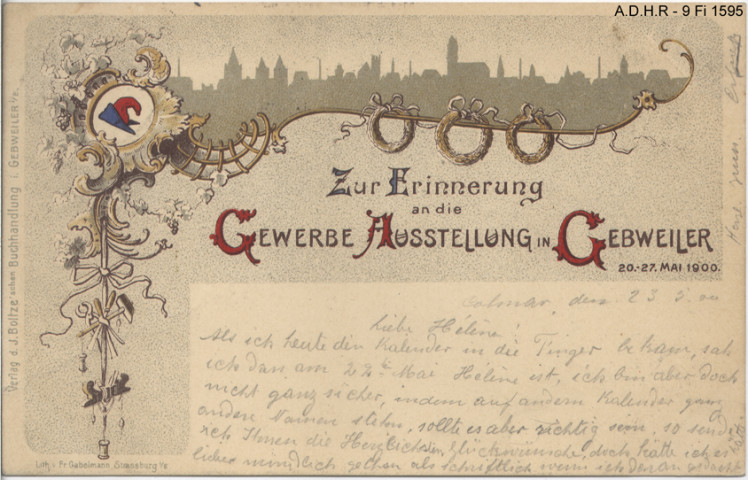 A.D.H.R - 9 Fi 1595
Zur Erinnerung
an die
GEWERBE AUSSTELLUNG IN GEBWEILER
20.-27. MAI 1900.
Colmar, den 23 5. 00
liebe Hélène!
Als ich heute den Kalender in die Finger bekam, sah
ich dan am 22ten Mai Helène ist, ich bin aber doch
nicht ganz sicher, indem auf andern Kalender ganz
andere Namen stehn, sollte es aber richtig sein, so sende
ich Ihnen die Herzlichsten Glückwünsche, doch hätte ich es
lieber mündlich gethan als schriftlich wenn ich daran gedacht
hätte
Verlag d. J. Boltze'schen Buchhandlung GEBWEILER i/E.
Lith. v. Fr. Gabelmann, Strassburg i/E